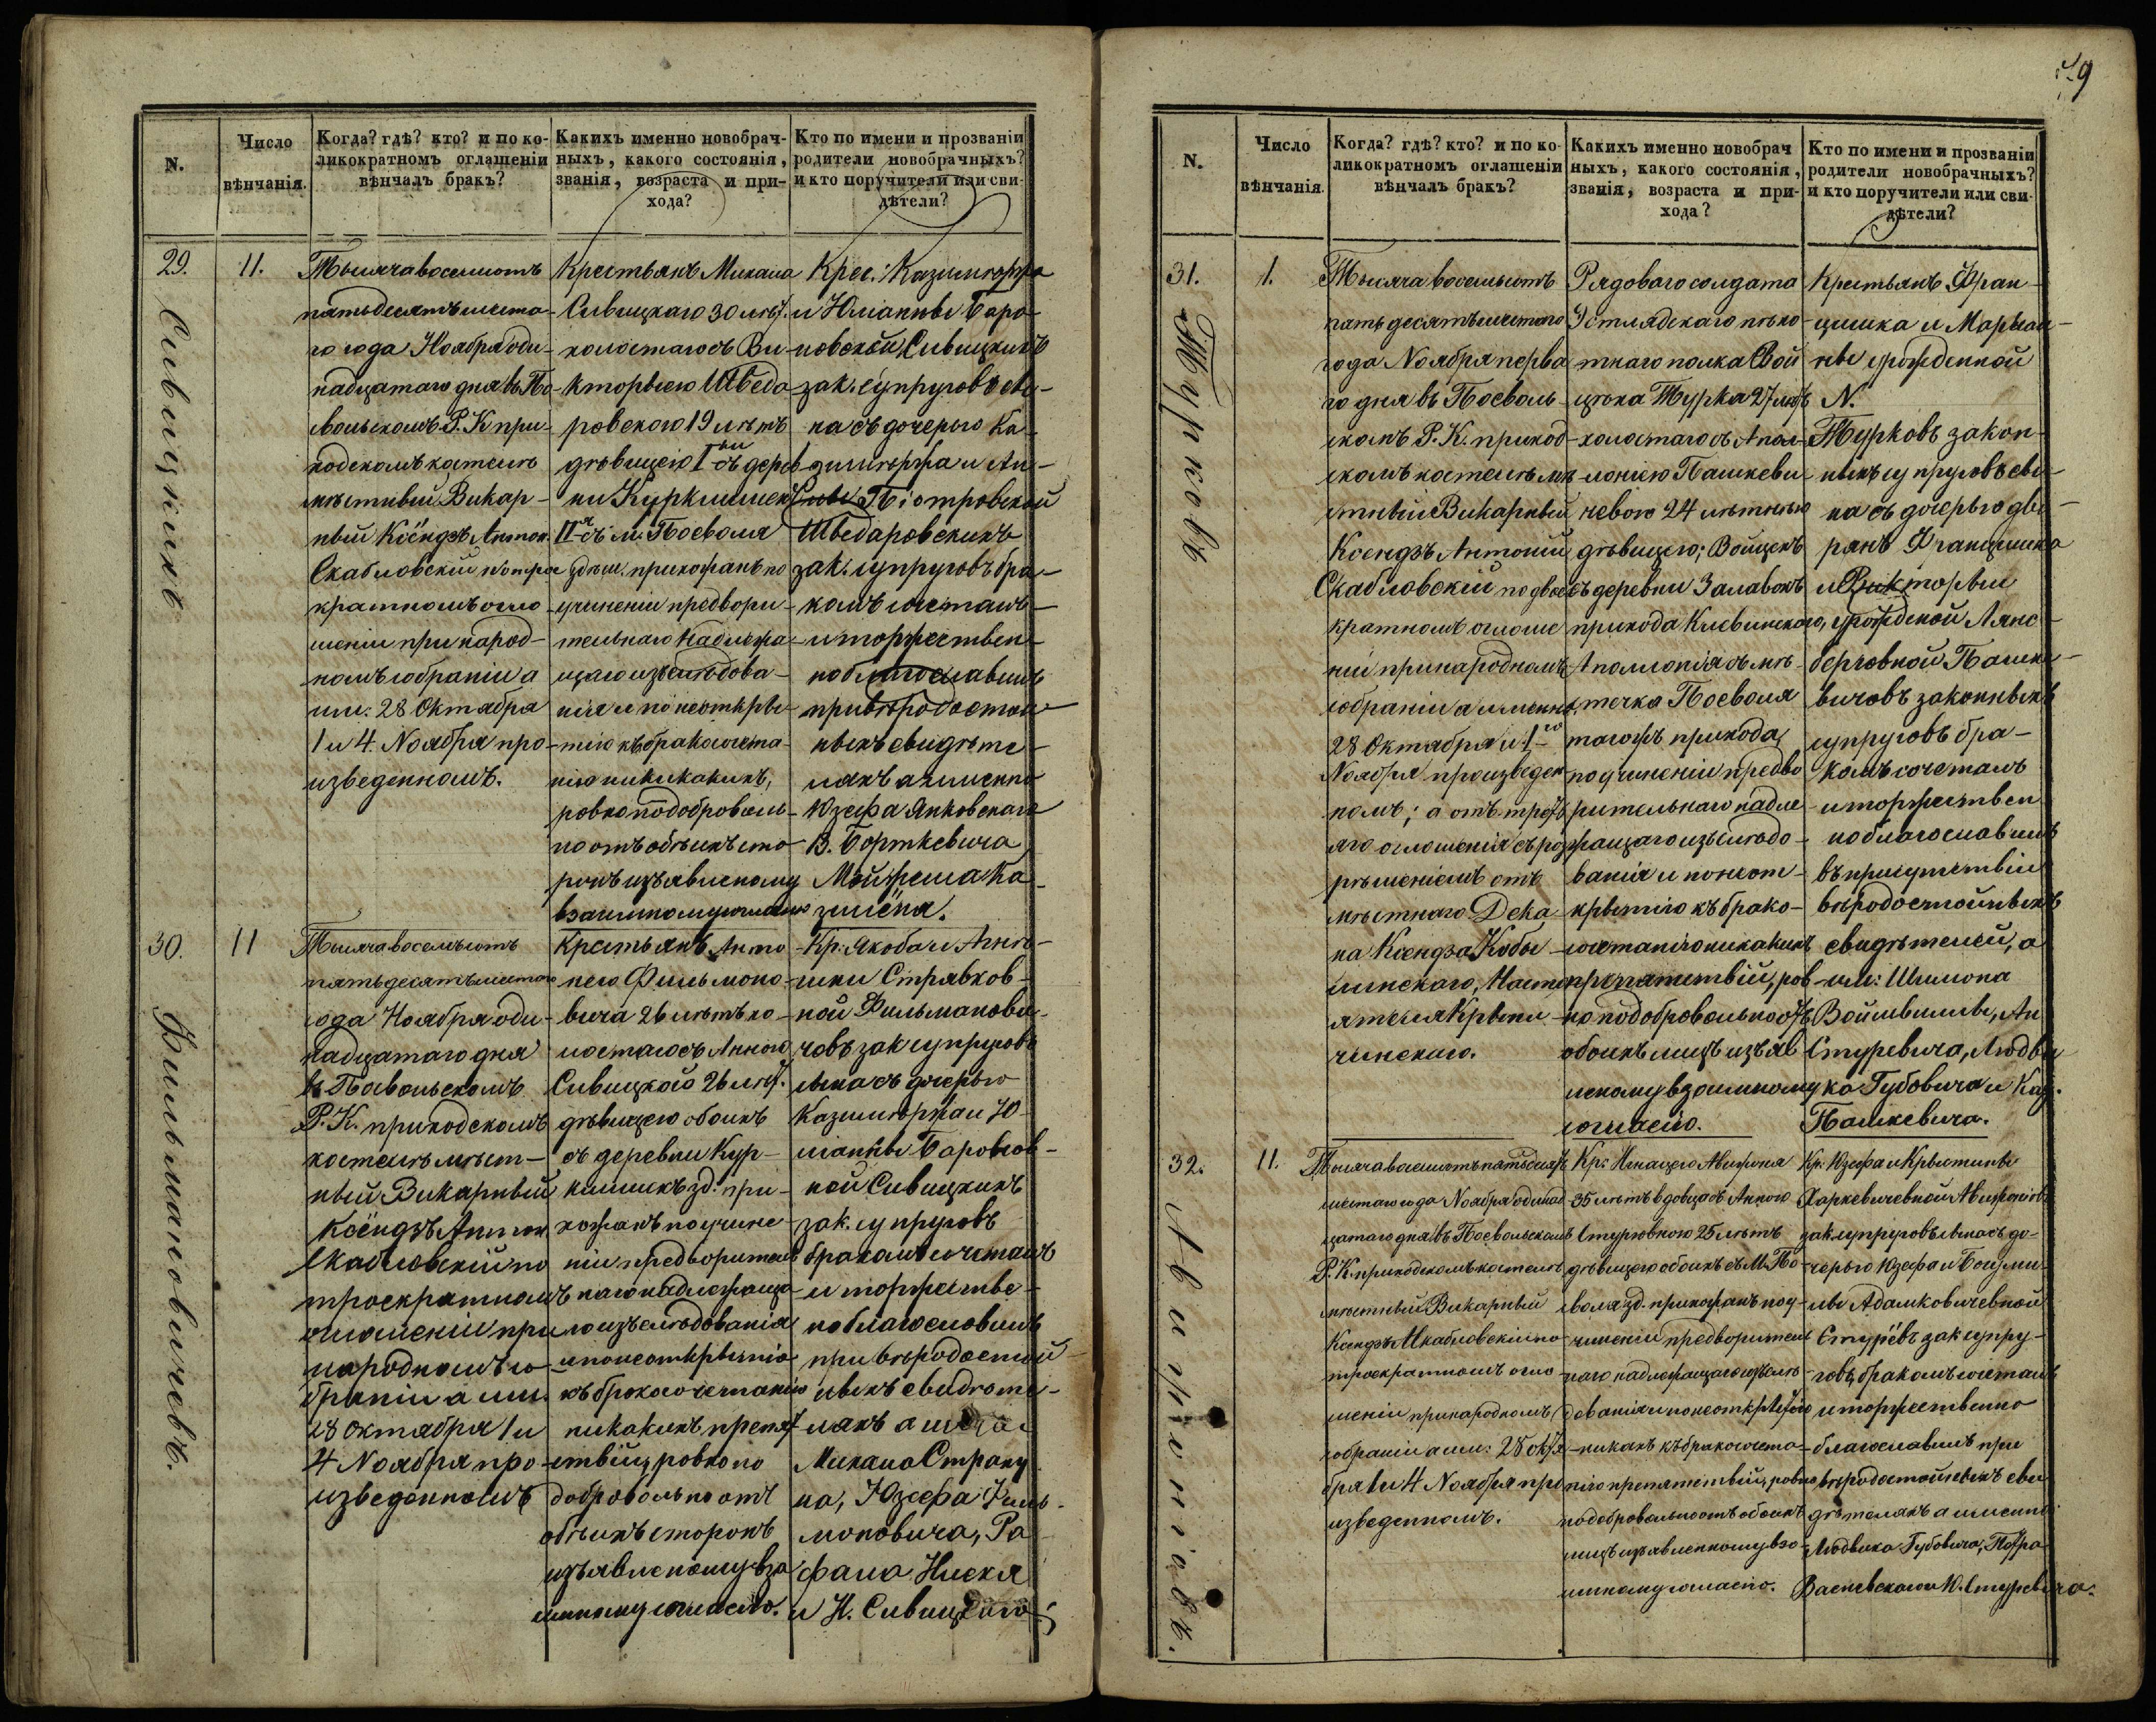 N.
Число
вѣнчанія.
Когда? гдѣ? кто? и по ко-
ликократномъ оглашеніи
вѣнчалъ бракъ?
Какихъ именно новобрач-
ныхъ, какого состоянія,
званія, возраста и при-
хода?
Кто по имени и прозванію
родители новобрачныхъ?
и кто поручители или сви-
дѣтели?
29.
Сивицкихъ
11.
Тысяча восемьсотъ
пятьдесятъ шеста-
го года Ноября оди-
надцатаго дня въ По-
вольскомъ Р. К при-
ходскомъ костелѣ
мѣстный Викар-
ный Ксёндзъ Антон.
Скабловскій по трое
кратномъ огло-
шеніи при народ-
номъ собраніи а
им: 28 Октября
1 и 4. Ноября про-
изведенномъ.
Крестьянъ Михала
Сивицкаго 30 лѣт.
холостаго съ Ви-
кторыею Шведа-
ровского 19 лѣтъ
дѣвицею I-ый съ дерев
ни Куркишек
II-я съ м. Поеволя
здѣш. прихожанъ по
учиненіи предвори-
тельнаго надлежа-
щаго изслѣдова-
нія и по неоткры-
тію къ бракосочета-
нію никакихъ,
ровно подобровель-
но отъ обѣихъ сто-
ронъ изъявленому
взаимному согласію
Крес.: Казимержа
и Юліанны Баро-
новской Сивицкихъ
зак. супруговъ сы-
на съ дочерью Ка-
зимержа и Ан-
ны Піотровской
Шведаровскихъ
зак. супруговъ бра-
комъ сочеталъ
и торжествен-
но благославилъ
при вѣродостой-
ныхъ свидѣте-
ляхъ а именно
Юзефа Янковскаго
В. Борткевича
Мойжеша Ка-
зимёна.
30.
Фильмановичевъ.
11
Тысяча восемьсотъ
пятьдесятъ шестаго
года Ноября оди-
надцатаго дня
въ Повольскомъ
Р. К. приходскомъ
костелѣ мѣст-
ный Викарный
Ксёндзъ Антон
Скабловскій по
троекратномъ
оглошеніи при
народномъ со-
браніи а им.
28 Октября 1 и
4 Ноября про-
изведенномъ
Крестьянъ Анто
него Фильмоно-
вича 26 лѣтъ хо-
лостаго съ Анною
Сивицкого 26 лѣт.
дѣвицею обоихъ
съ деревни Кур-
кишекъ зд. при-
хожанъ по учине
ніи предворитель
наго надлежаща-
го изслѣдованія
и по неоткрытію
къ бракосочетанію
никакихъ препят
ствій, ровно по
добровольно отъ
обѣихъ сторонъ
изъявленому вза
имному согласію.
Кр. Якоба и Агнѣ-
шки Стрявков-
ной Фильманови-
човъ зак супруговъ
сына съ дочерью
Казимержа и Ю-
ліанны Баронов-
ной Сивицкихъ
зак. супруговъ
бракомъ сочеталъ
и торжестве-
но благословилъ
при вѣродостой-
ныхъ свидѣте-
ляхъ а имено
Михала Страку
на, Юзефа Филь-
моновича, Ра
фала Нискя
и Н. Сивицкаго
9
N.
Число
вѣнчанія.
Когда? гдѣ? кто? и по ко-
ликократномъ оглашеніи
вѣнчалъ бракъ?
Какихъ именно новобрач
ныхъ, какого состоянія,
званія, возраста и при-
хода?
Кто по имени и прозваніи
родители новобрачныхъ?
и кто поручители или сви-
дѣтели?
31.
Турковъ
1.
Тысяча восемьсотъ
пятьдесятъ шестаго
года Ноября перва
го дня въ Поеволь-
скомъ Р. К. приход-
скомъ костелѣ мѣ-
стный Викарный
Ксендзъ Антоній
Скабловскій по двое
кратномъ оглоше
ніи при народномъ
собраніи а именно.
28 Октября и 1-го
Ноября произведен
номъ; а отъ третъ
яго оглошенія съ раз
рѣшеніемъ отъ
мѣстнаго Дека
на Ксендза Кобы-
линскаго, Насто
ятеля Крыни-
чинскаго.
Рядоваго солдата
Эстляндскаго пѣхо-
тнаго полка Вой
цѣха Турка 27 лѣтъ
холостаго съ Апол-
лоніею Пашкеви
чевою 24 лѣтнею
дѣвицею; Войцехъ
съ деревни Залавокъ
прихода Клевинскаго,
Аполлонія съ мѣ-
стечка Поеволя
тогожъ прихода,
по учиненіи предво
рительнаго надле
жащаго изслѣдо-
ванія и по неот-
крытію къ брако-
сочетанію никакихъ
препятствій, ров-
но подобровольно отъ
обоихъ лицъ изъяв
леному взаимному
согласію.
Крестьянъ Фран-
цишка и Марыан-
ны урожденной
N.
Турковъ закон-
ныхъ супруговъ сы-
на съ дочерью дво-
рянъ Францишка
и Викторыи
урожденой Лянс-
берговной Пашке-
вичовъ законныхъ
супруговъ бра-
комъ сочеталъ
и торжествен
но благославилъ
въ присутствіи
вѣродостойныхъ
свидѣтелей, а
им: Шимона
Войшвиллы, Ан
Стуревича, Людви
ка Губовича и Каз.
Пашкевича.
32.
Авижніовъ.
11.
Тысяча восемьсотъ пятьдесятъ
шестаго года Ноября одинад
цатаго дня въ Поевольскомъ
Р. К. приходскомъ костелѣ
мѣстный Викарный
Ксендзъ Скабловскій по
троекратномъ огло
шеніи при народномъ
собраніи а им: 28 октя-
бря 1 и 4 Ноября про
изведенномъ.
Кр: Игнацего Авижня
35 лѣтъ вдовца съ Анною
Стуровною 25 лѣтъ
дѣвицею обоихъ съ М. По-
еволя зд. прихожанъ по у-
чиненіи предворитель
наго надлежащаго изслѣ-
дованія и по неоткрытію
никакъ къ бракосочета-
нію препятствій, ровно
подобровольно отъ обоихъ
лицъ изъявленному вза
имному согласію.
Кр: Юзефа и Крыстины
Харкевичевной Авижніовъ
зак супруговъ сына съ до-
черью Юзефа и Богуми-
лы Адамковичевной
Стурёвъ зак супру-
говъ, бракомъ сочеталъ
и торжественно
благославилъ при
вѣродостойныхъ сви
дѣтеляхъ а именно
Людвика Губовича, Петра
Васневскаго и Ю. Стуревича.